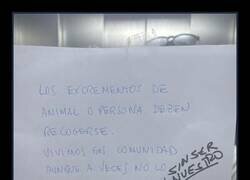 LOS EXCREMENTOS DE
ANIMAL O PERSONA DEBEN
RECOGERSE.
VIVIMOS EN COMUNIDAD
AUNQUE A VECES NO LO
SIN SER
NUESTRO